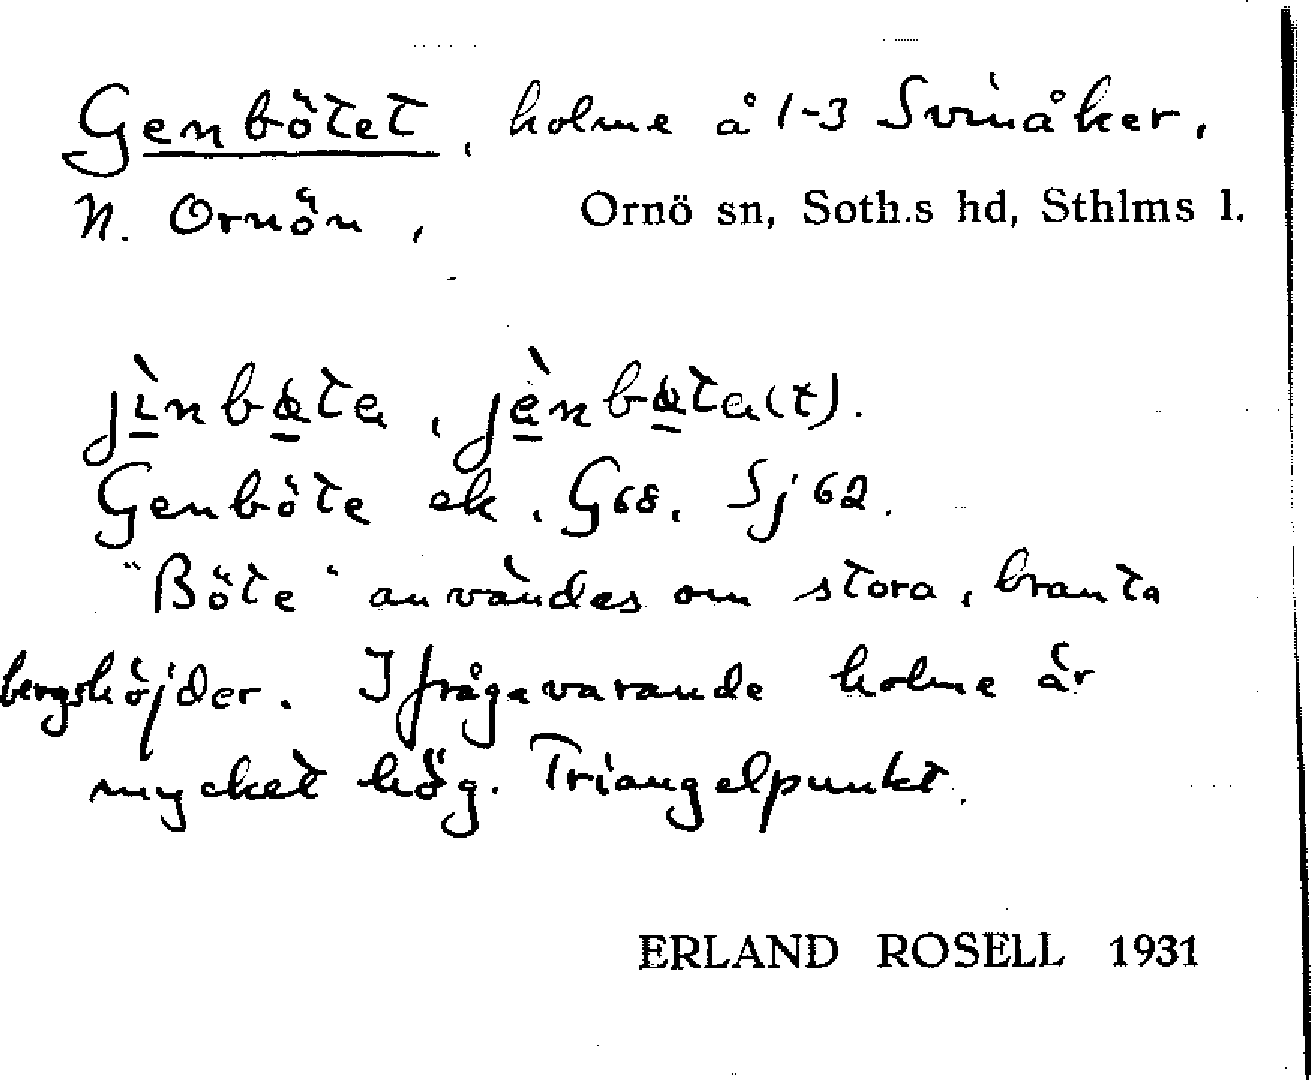 Genbötet, holme å 1-3 Svinåker,
N. Ornön, Ornö sn, Soth.s hd, Sthlms l.
Genböte ek. G68. Sj 62.
"Böte" användes om stora, branta
bergshöjder. Ifrågavarande holme är
mycket hög. Triangelpunkt.
ERLAND ROSELL 1931